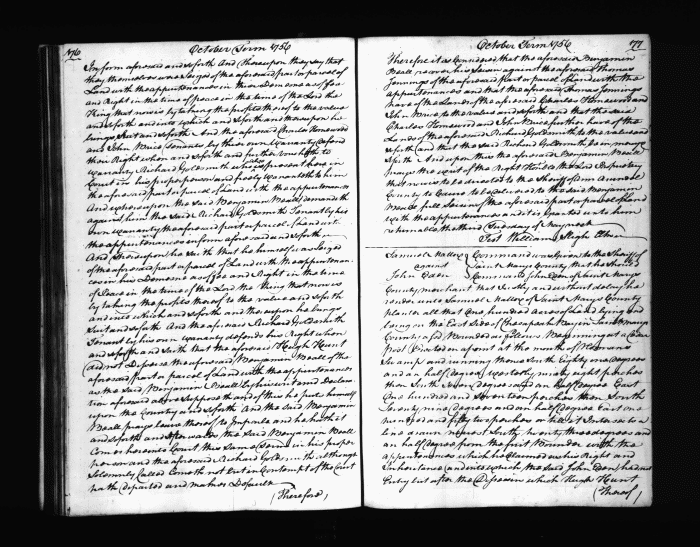 176
October Term 1756
In form aforesaid and so forth And thereupon they say that
they themselves were seized of the aforesaid part or parcel of
Land with the appurtenances in their Demesne as of fee
and Right in the time of peace in the time of the Lord the
King that now is by taking the profits thereof to the value
and so forth and into which and so forth and thereupon he
brings Suit and so forth And the aforesaid Charles Homewood
and John Brice Tenants by their own Warranty Defend
their Right when and so forth and further vouch to
Warranty Richard Goldsmith who is present here in
Court in his proper person and freely Warranteth to him
the aforesaid part or parcel of Land with the appurtenances
And whereupon the said Benjamin Beall Demands
against him the said Richard Goldsmith Tenant by his
own Warranty the aforesaid part or parcel of Land with
the appurtenances in form aforesaid and so forth
And thereupon he saith that he himself was Seized
of the aforesaid part or parcel of Land with the appurtenan-
ces in his Demesne as of fee and Right in the time
of Peace in the time of the Lord the King that now is
by taking the profits thereof to the value and so forth
and into which and so forth and thereupon he brings
Suit and so forth And the aforesaid Richard Goldsmith
Tenant by his own Warranty defends his Right when
and so forth and saith that the aforesaid Hugh Hunt
did not Disseise the aforesaid Benjamin Beall of the
aforesaid part or parcel of Land with the appurtenances
as the said Benjamin Beall by his writ and Declara
tion aforesaid above Supposeth and of this he puts himself
upon the Country and so forth And the said Benjamin
Beall prays leave thereof to Imparle and he hath it
and so forth and afterwards the said Benjamin Beall
Comes here into Court this same Term in his proper
person and the aforesaid Richard Goldsmith although
Solemnly Called Cometh not but in Contempt of the Court
hath departed and makes Default
(Therefore)
October Term 1756
177
Therefore it is Considered that the aforesaid Benjamin
Beall recover his Seisin against the aforesaid Thomas
Jennings of the aforesaid part or parcel of Land with the
appurtenances and that the aforesaid Thomas Jennings
have of the Land of the aforesaid Charles Homewood and
John Brice to the value and so forth and that the said
Charles Homewood and John Brice further have of the
Land of the aforesaid Richard Goldsmith to the value and so
forth and that the said Richard Goldsmith be in mercy
&c forth And upon this the aforesaid Benjamin Beall
prays the writ of the Right Honble the Lord Proprietary
that now is to be directed to the Sheriff of Ann Arundel
County to Cause to be delivered to the said Benjamin
Beall full Seisin of the aforesaid part or parcel of Land
with the appurtenances and it is Granted unto him
returnable the third Tuesday of May next
Test William Steigh Clkm
Samuel Mallory
against
John Eden
Command was Given to the Sheriff of
Saint Marys County that he Should
Command John Eden of Saint Marys
County merchant that Justly and without delay he
render unto Samuel Mallory of Saint Marys County
planter all that One hundred acres of Land lying and
being on the East Side of Chesapeake Bay in Saint Marys
County aforesd Bounded as follows Beginning at a Cedar
Post fixed in a point at the mouth of
Swamp and running thence South Eighty one Degrees
and an half degree West Forty ninety eight perches
then South Seven degrees and an half degree East
One hundred and Seventeen perches then South
Seventy nine degrees and an half degree East one
hundred and fifty two perches until it Intersects a
line drawn West South twenty three degrees and
an half degree from the first Bounder with the
appurtenances which he Claims as his Right and
Inheritance and into which the said John Eden had not
Entry but after the Disseisin which Hugh Hunt
(thereof)